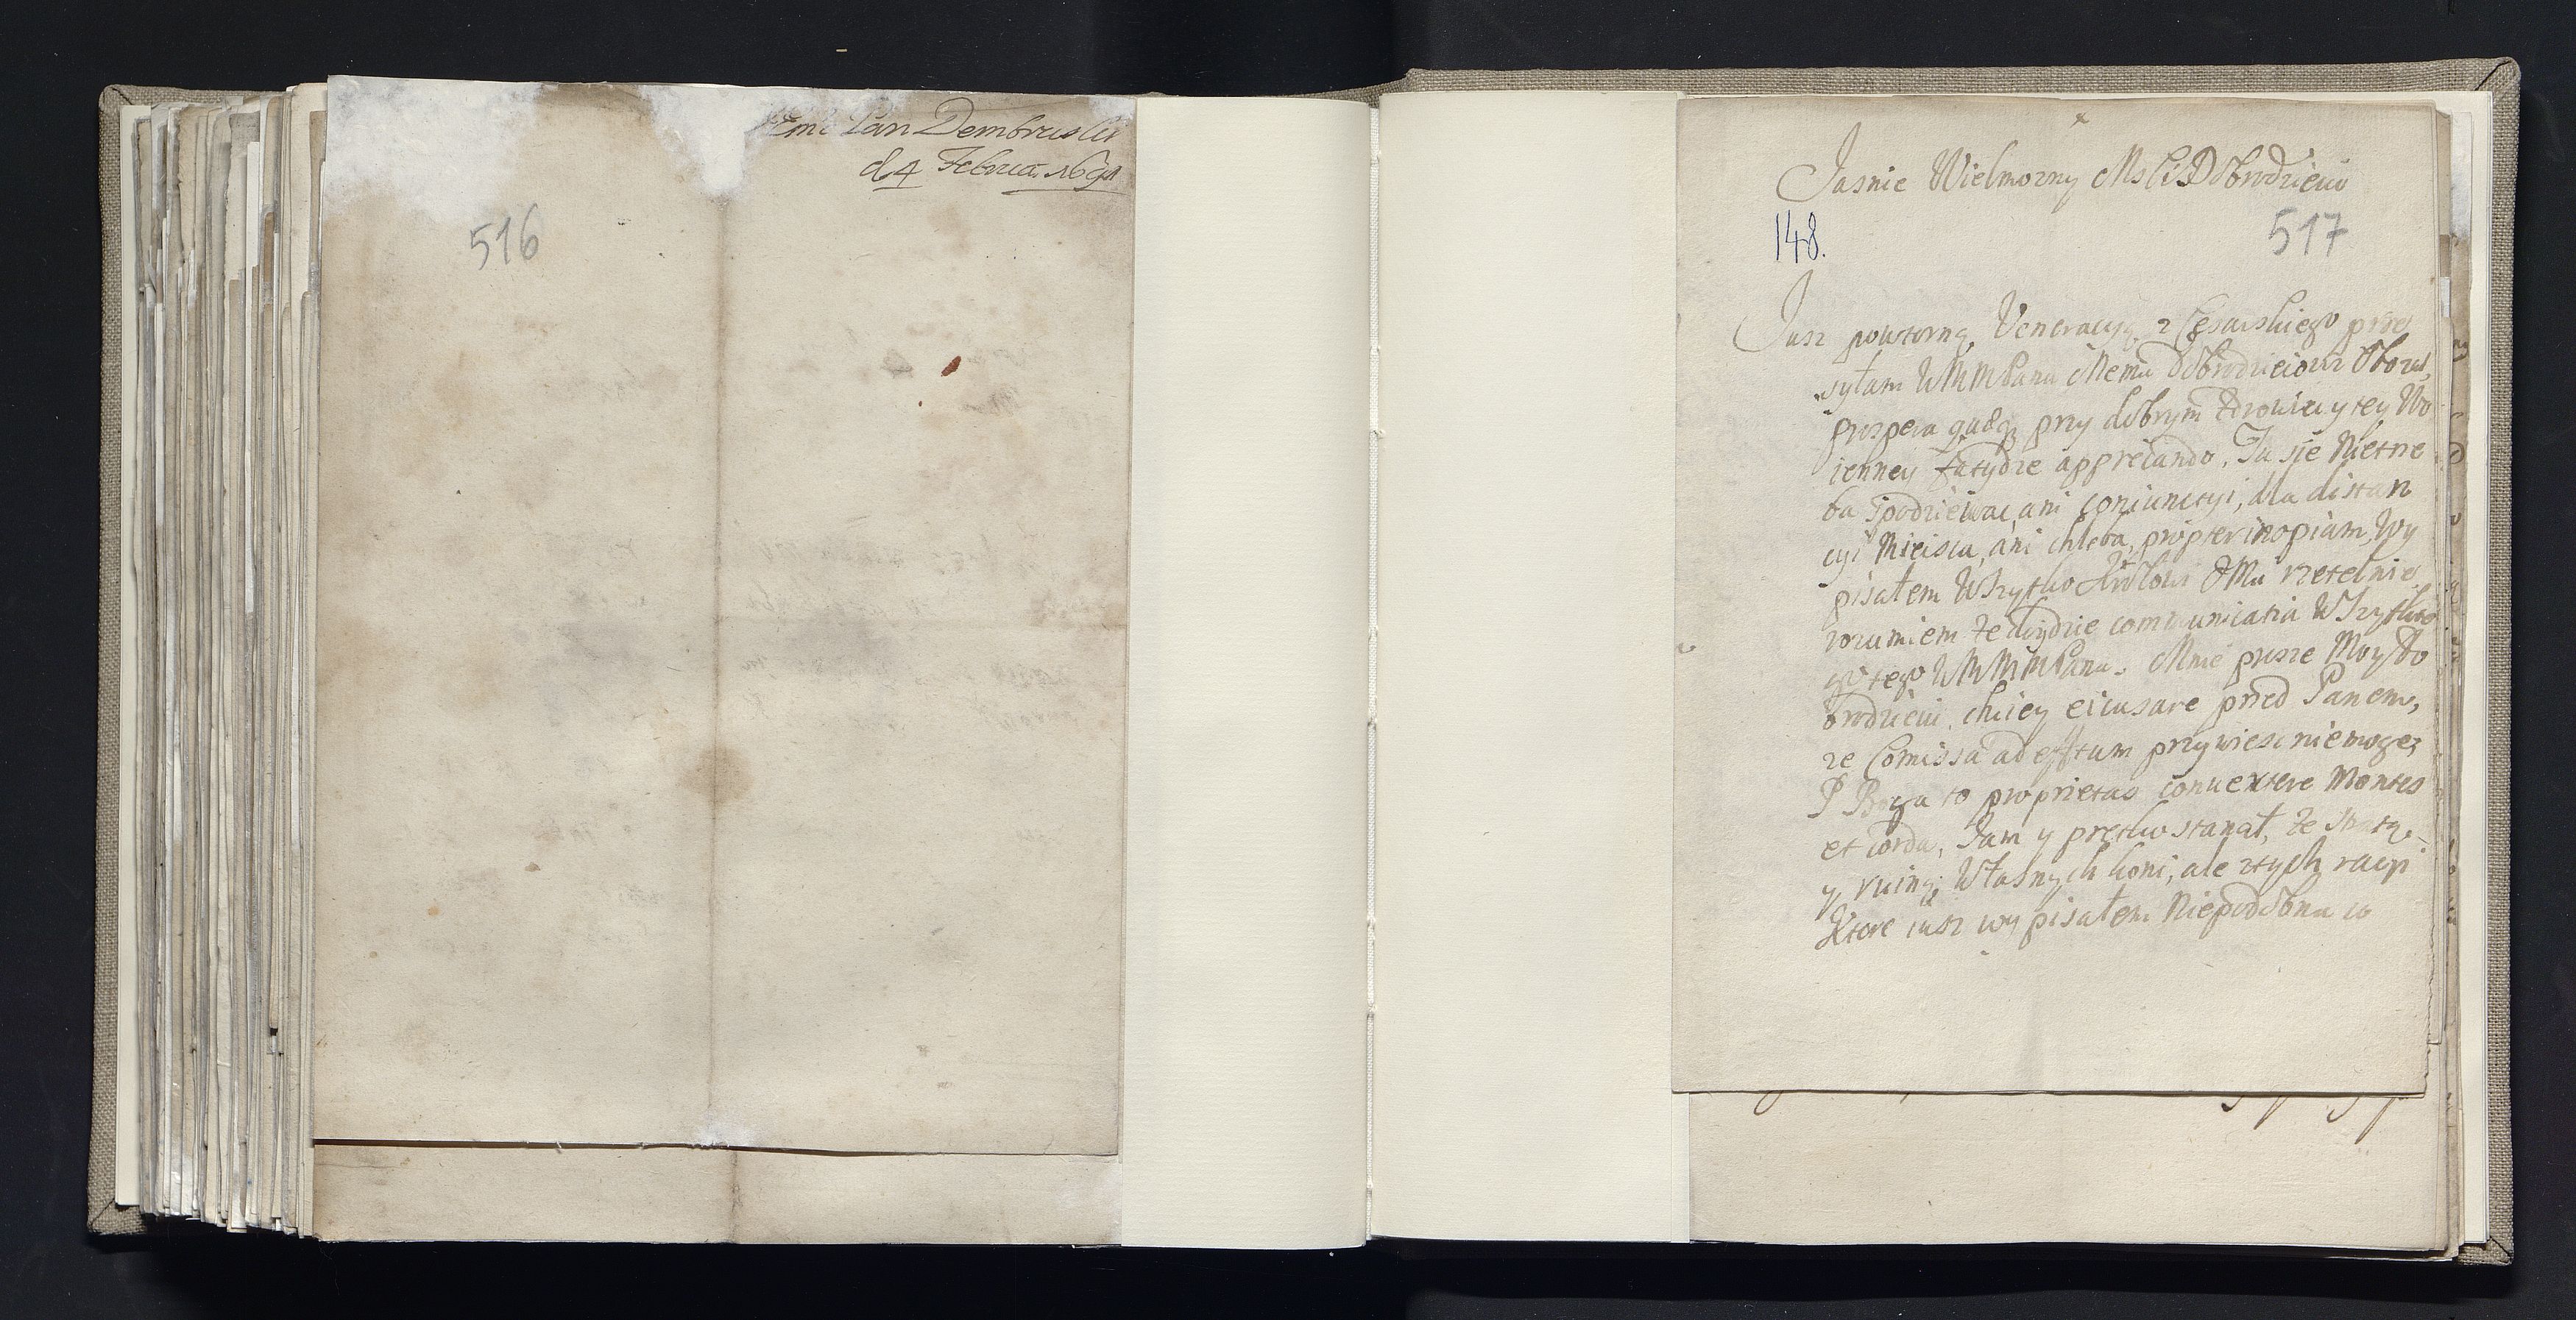 Jmc Pan Dembruski
d 4 Februa. 1691
516
Jasnie Wielmozny Msci Dobrodzieiu
148.
517
Jusz powtorną Veneracyą z Cesarskiego prze
sylam WMMPanu Memu Dobrodzieiowi
prospera quæq przy dobrym zdrowiu y tey Wo
ienney fatydze apprecando. Tu sie Nietrze
ba spodziewac ani coniunctyi, dla distan
cyi Mieisca, ani chleba, propter inopiam, Wy
pisałem Wszytko Krolowi JMci rzetelnie
rozumiem ze doydzie communicatia Wszytkie
go tego WMMMPana. Mnie prosze Moy Do
brodzieiu chciey excusare przed Panem,
ze Comissa ad effectum przywiesc niemoge,
P Boga to proprietas convertere Montes
et corda, Jam y prętko stanął, ze stratą
y ruiną Własnych koni, ale z tych racyi
Ktore iusz wypisałem Niepodobna co